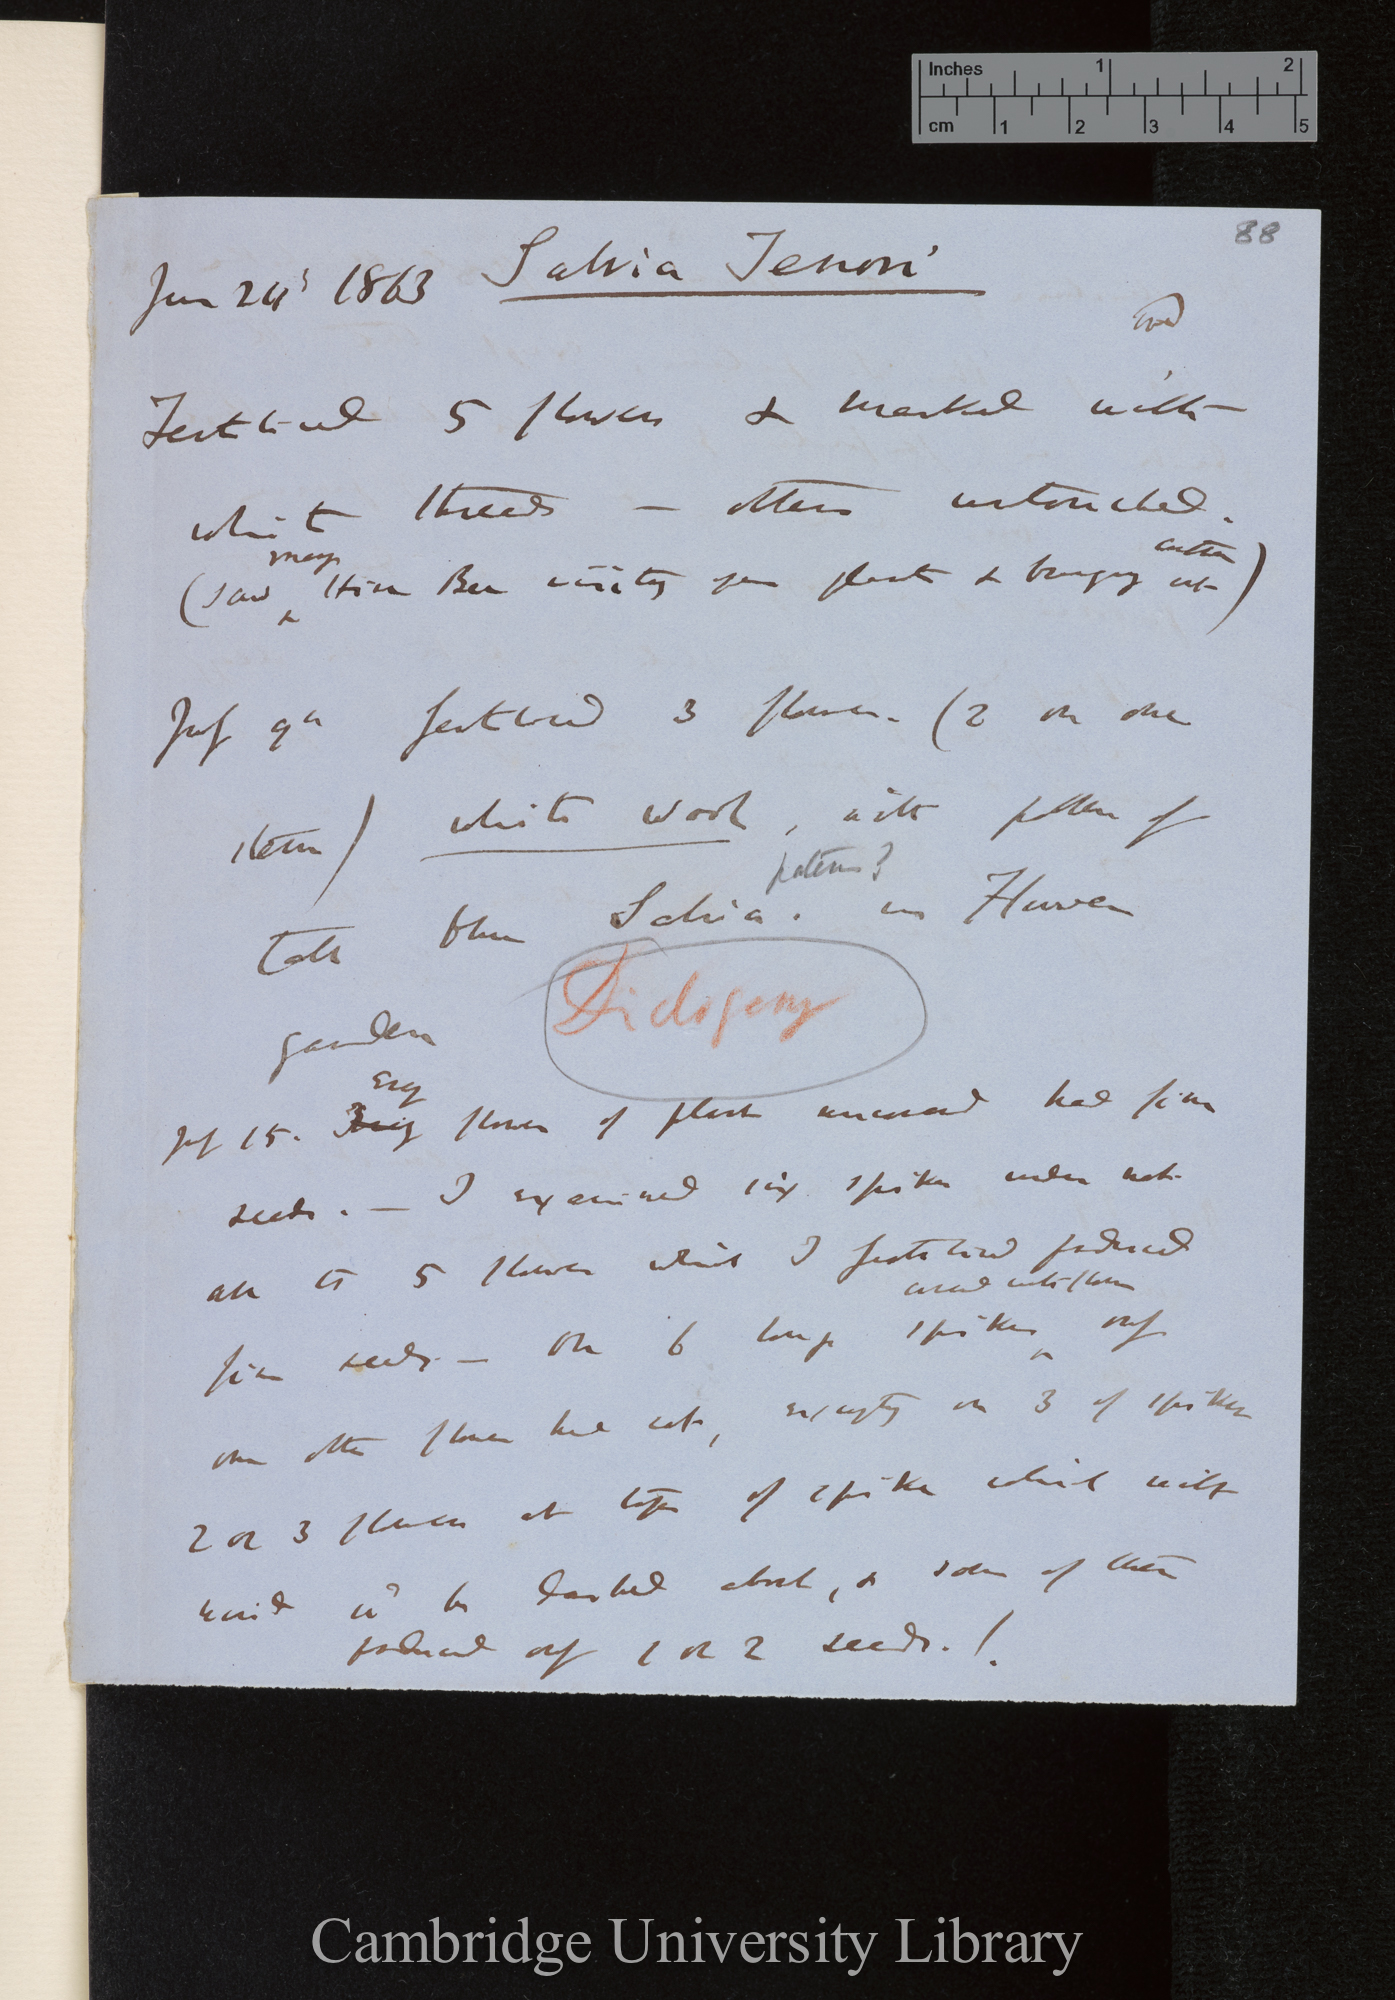 Inches 1 2
cm 1 2 3 4 5
88
June 24' 1863 Salvia Tenori
Fertilised 5 flowers & marked with
white threads — others untouched.
many anthers
(Saw Hive Bee visiting your plant & bringing out)
July 9th fertilised 3 flowers. (2 on one
stem) white wool, with pollen of
patens?
tall blue Salvia. in Flower
garden
Dichogamy
every
July 15. flower of plant uncovered had fine
seeds. — I examined six spikes under net
all the 5 flowers which I fertilised produced
cord with flowers
fine seeds — On 6 long spikes only
one other flower had set, excepting on 3 of spikes
2 or 3 flowers at tips of spike which with
wind wd be dashed about, & some of these
produced only 1 or 2 seeds. !.
Cambridge University Library